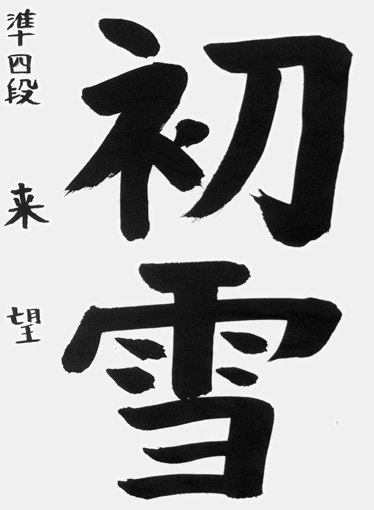 初雪
準十四段 来望